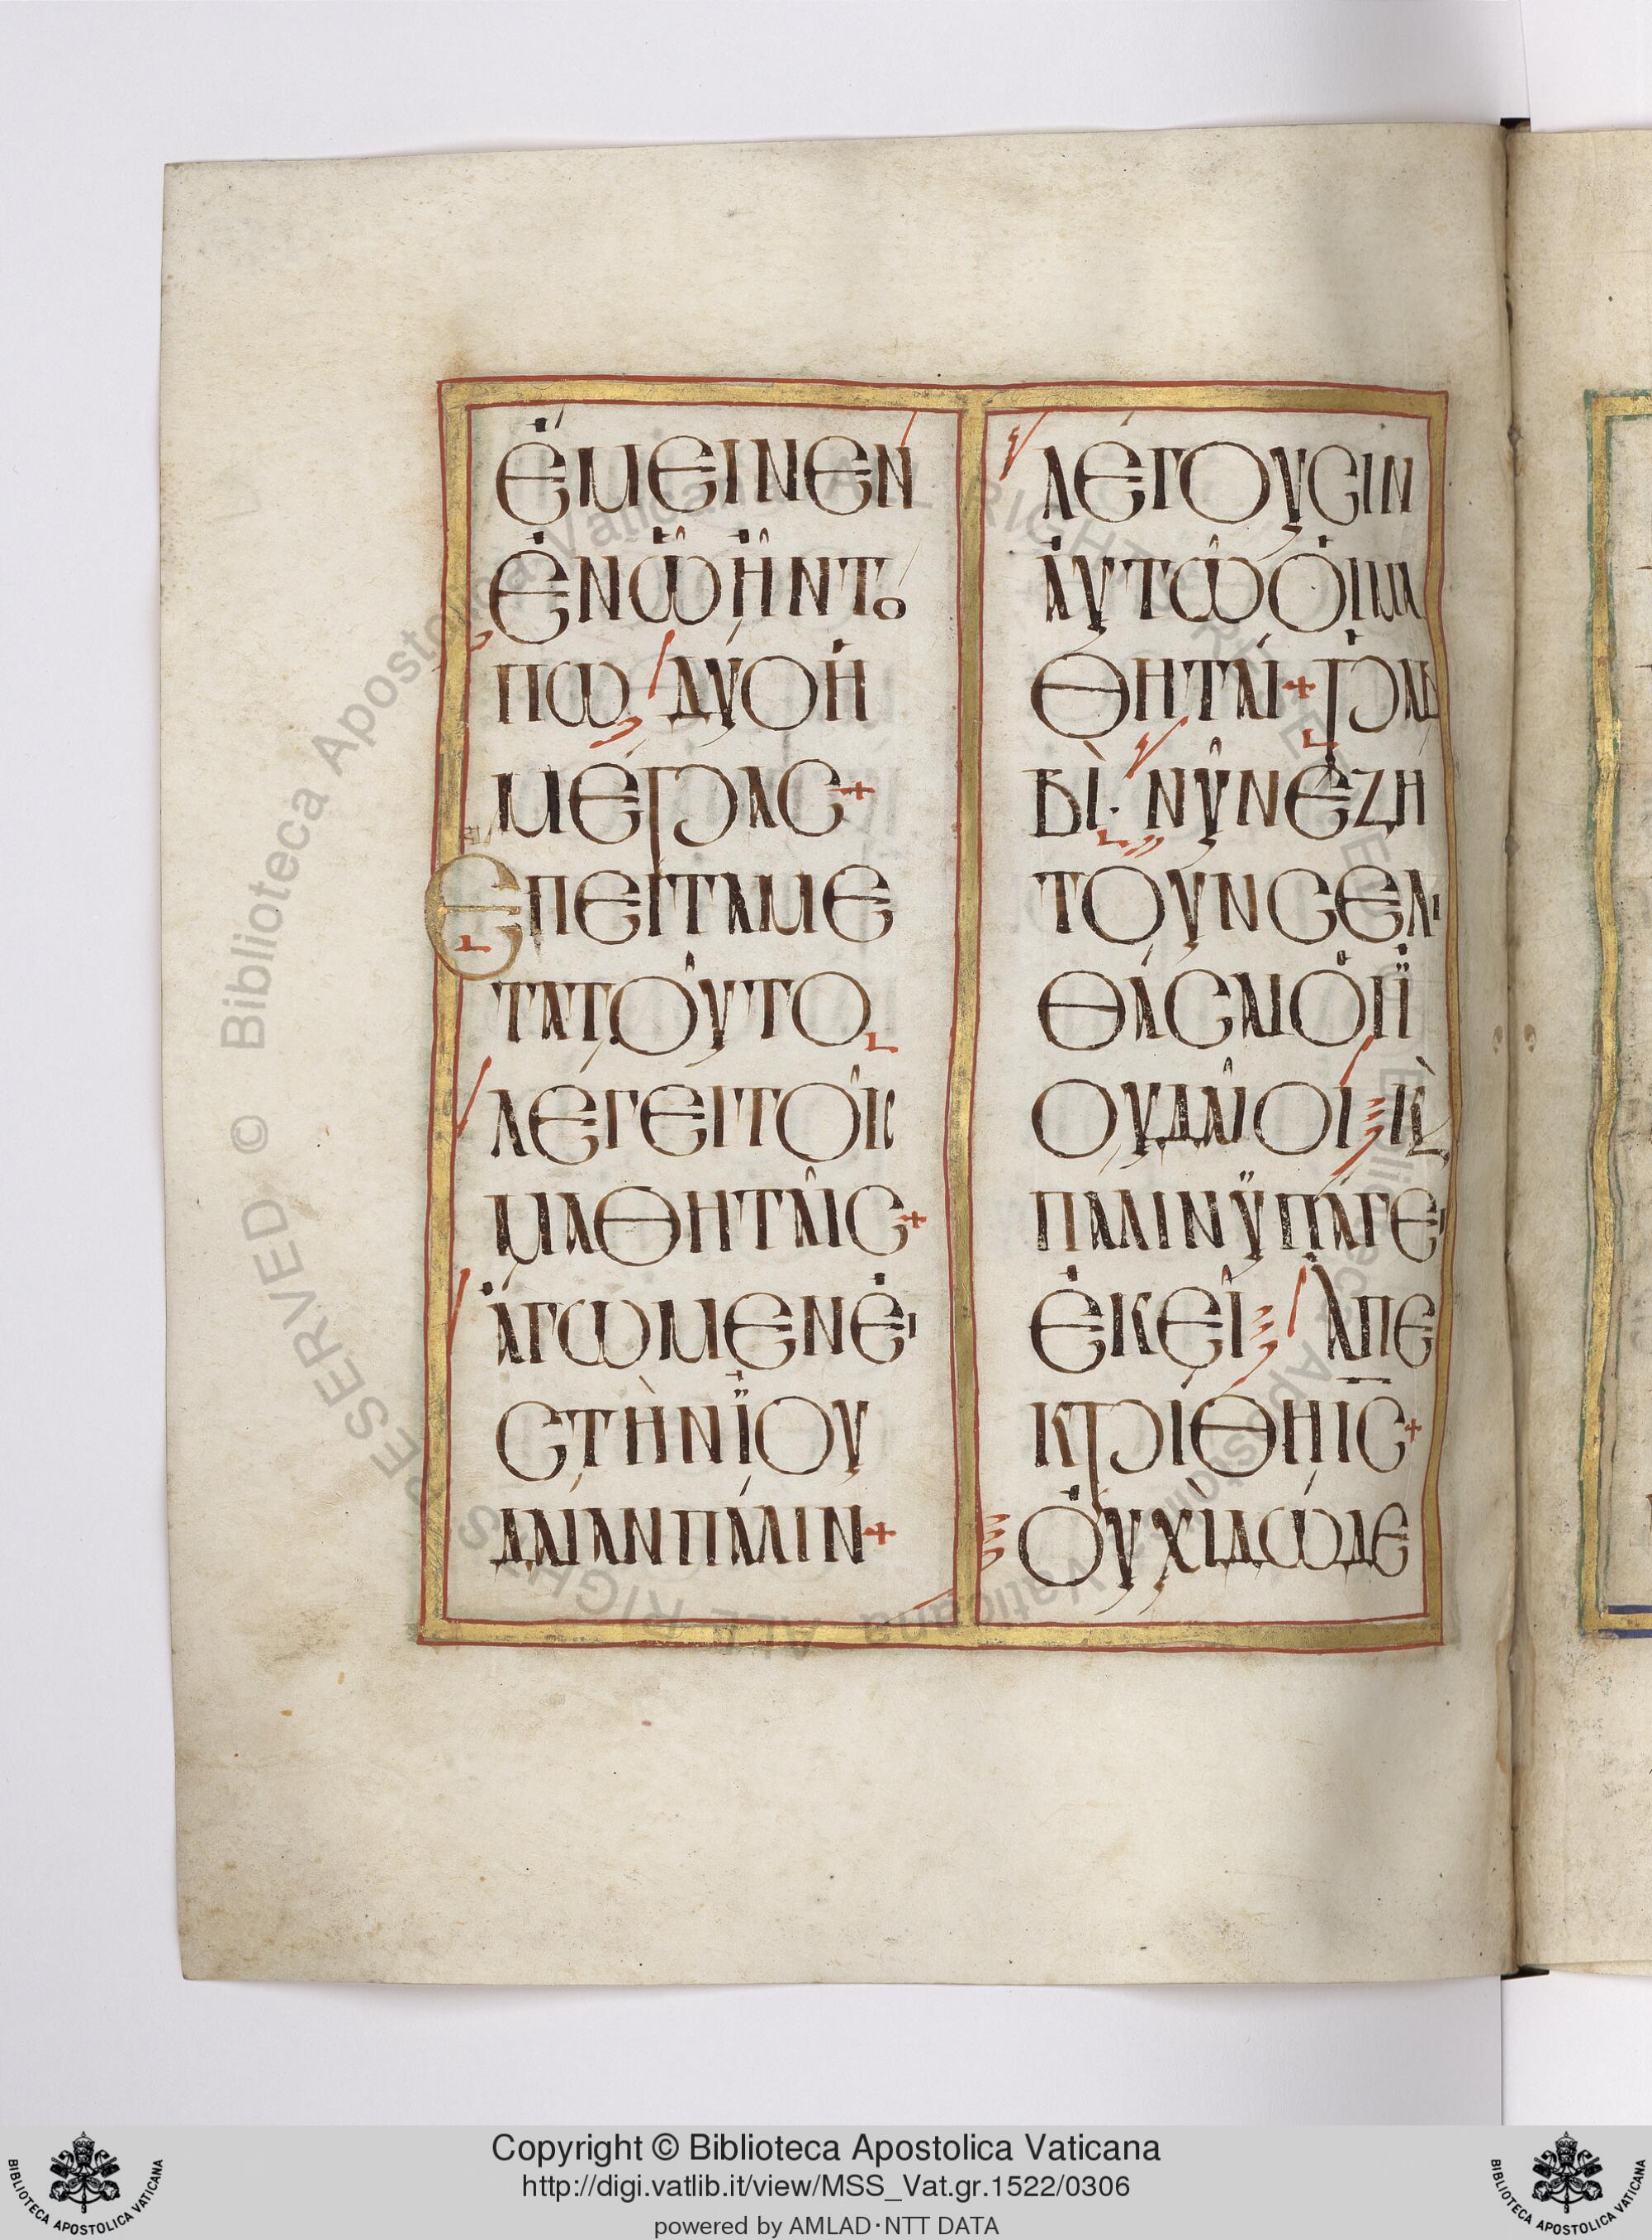 ἔμεινεν
ἐν ὧ ἦν το
πω δύο ἡ
μέρας +
Ἔπειτα με
τὰ τοῦτο
λέγει τοῖς
μαθηταῖς +
ἄγωμεν εἰ
ς τὴν ἰου
δαίαν πάλιν +
λέγουσιν
αὐτῶ οἱ μα
θηταί + ραβ
βὶ · νῦν ἐζή
τουν σε λι
θάσαι οἱ ἰ
ουδαῖοι κ̀
πάλιν ὑπάγει
ἐκεῖ Ἀπε
κρίθη ις +
οὐχὶ δώδε
© Biblioteca Apostolica Vaticana ALL RIGHTS RESERVED
Copyright © Biblioteca Apostolica Vaticana
http://digi.vatlib.it/view/MSS_Vat.gr.1522/0306
powered by AMLAD·NTT DATA
BIBLIOTECA APOSTOLICA VATICANA
BIBLIOTECA APOSTOLICA VATICANA